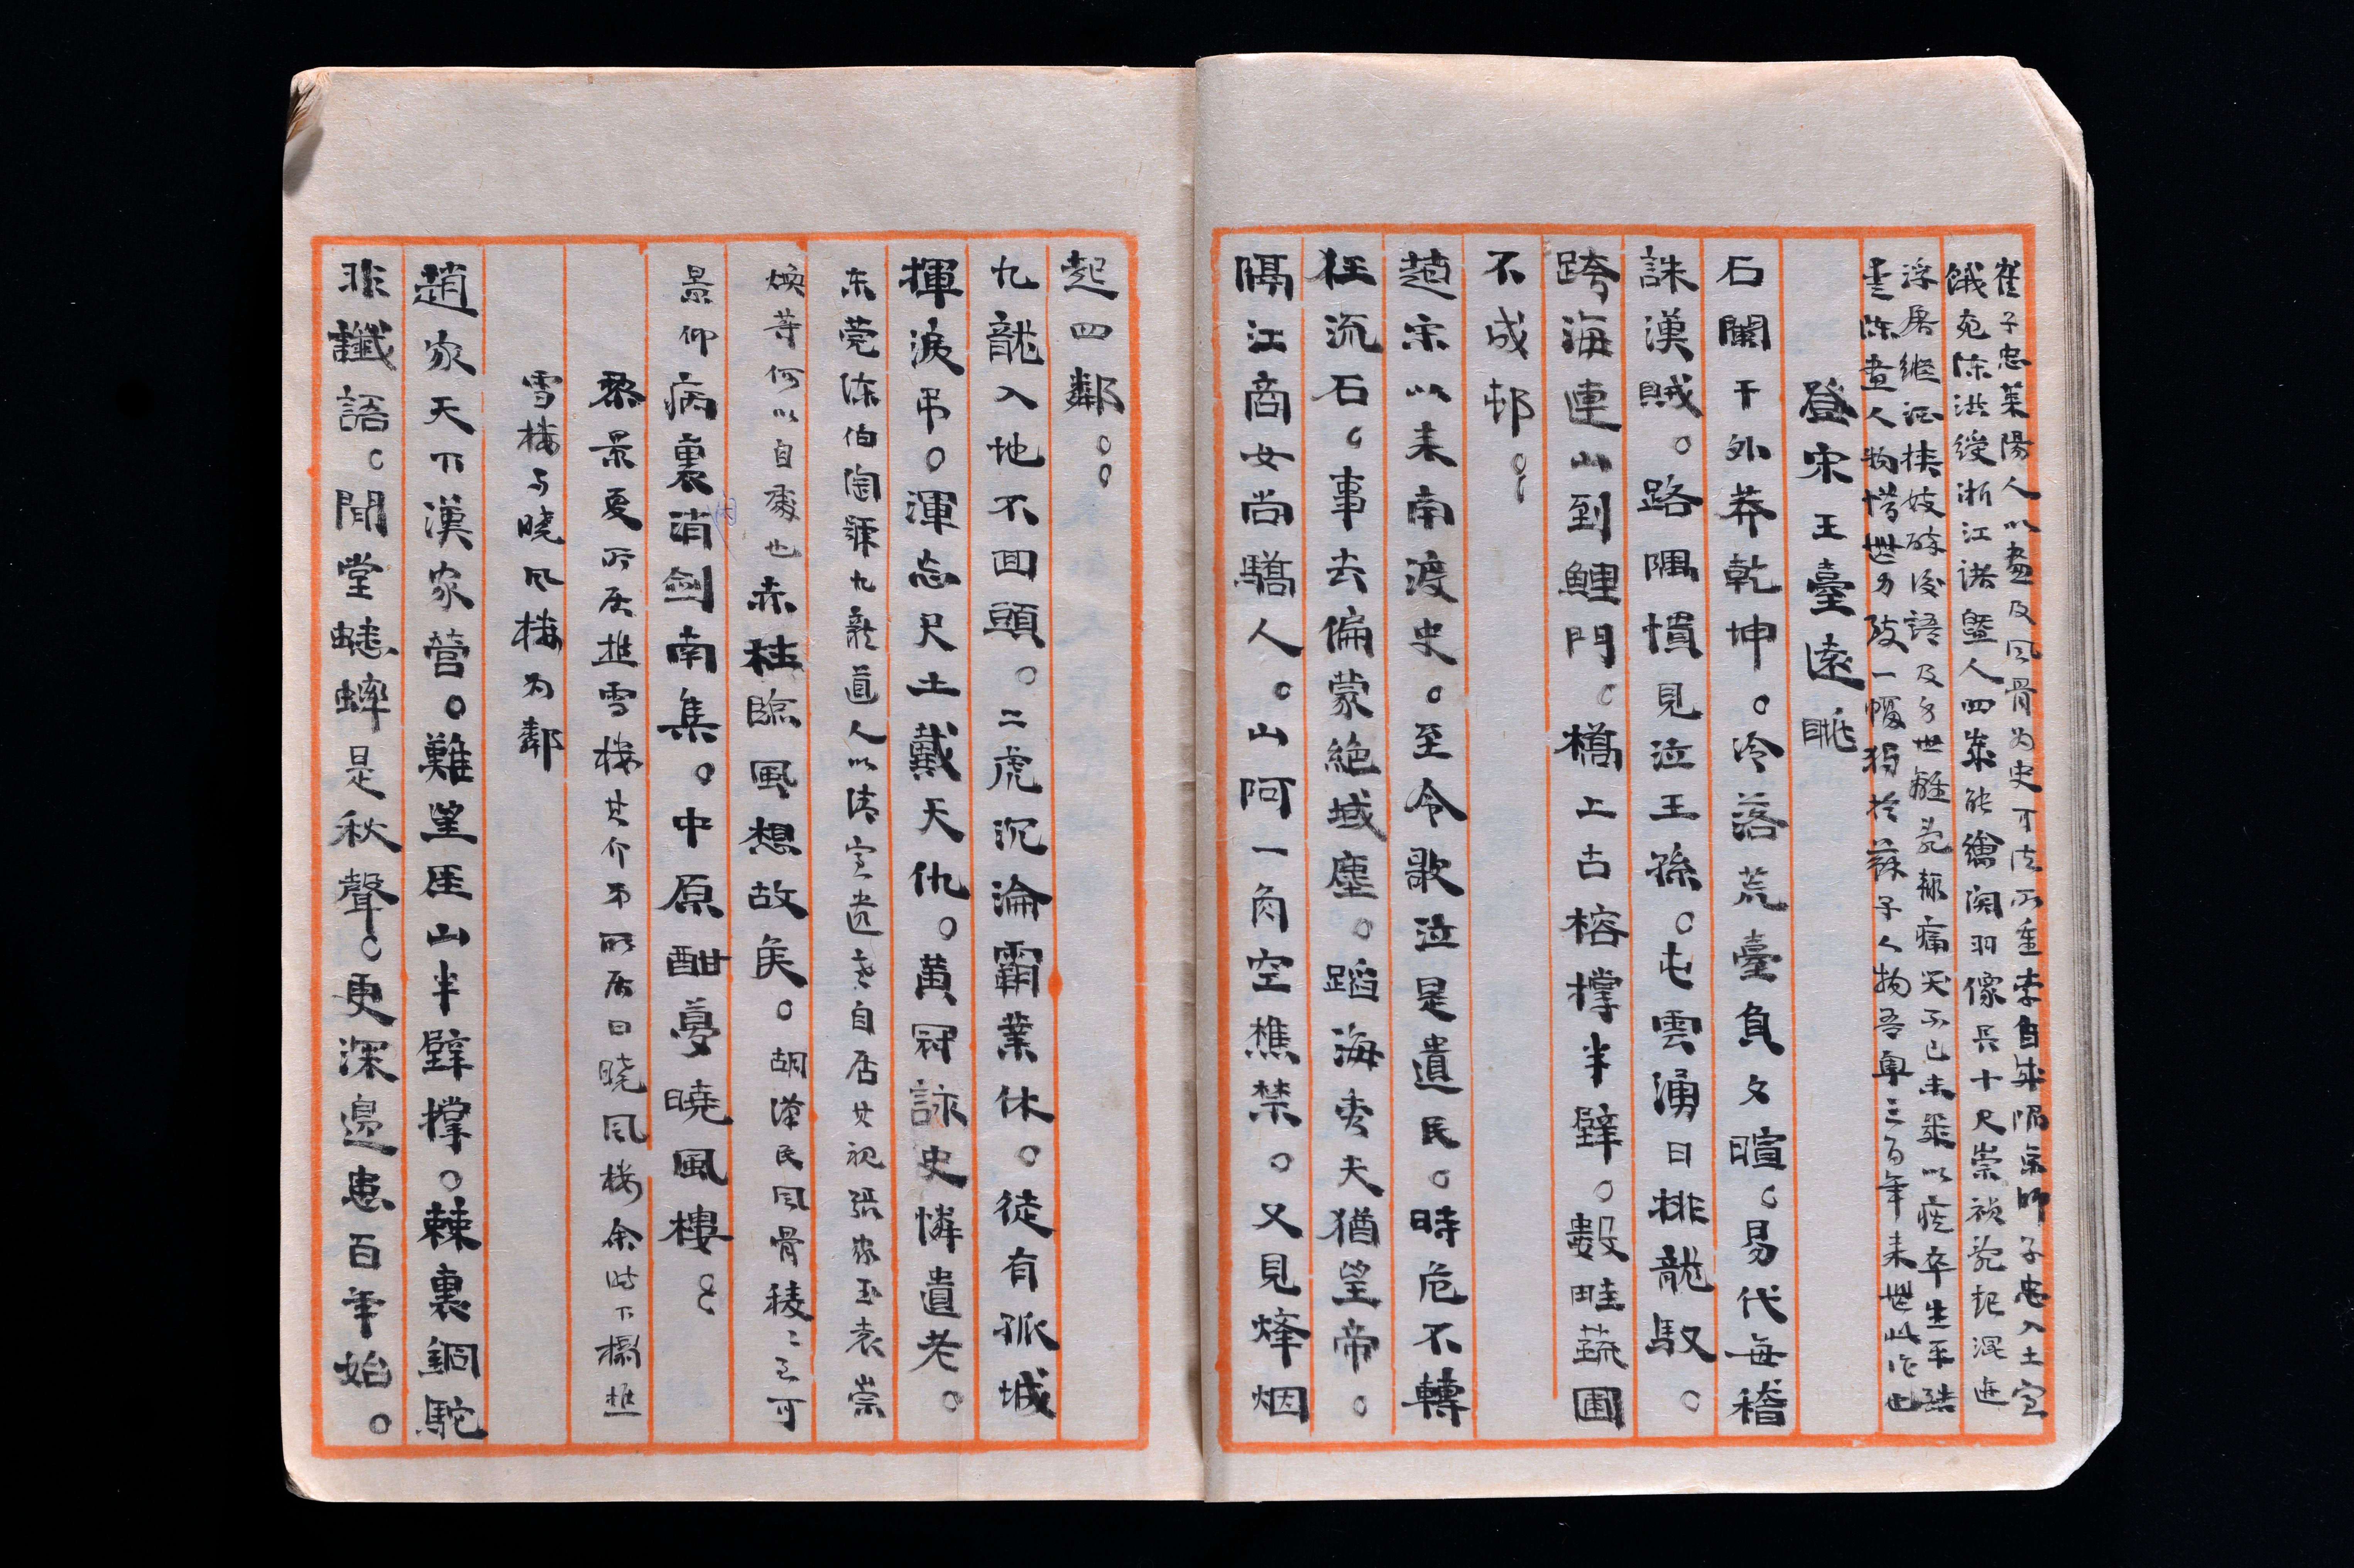 崔子忠萊陽人以畫及風骨为史可法所重李自成陷京師子忠入土室
餓死陈洪綬浙江諸暨人四歲能繪関羽像長十尺崇禎亂起混迹
浮屠縱酒挟妓醉後語及身世離亂輒痛哭不已未幾以疾卒生平
畫人物惜世乃一幅獨於蘇子人物吾軍三百年来世此作也
登宋王臺遠眺
石闌干外莽乾坤。冷落荒臺負夕暄。易代每稽
誅漢賊。路隅慣見泣王孫。屯雲湧日排龍馭。
跨海連山到鯉門。橋上古榕撑半壁。數畦蔬圃
不成邨。。
趙宋以来南渡史。至今歌泣是遺民。時危不轉
狂流石。事去偏蒙絕域塵。蹈海壹夫猶望帝。
隔江商女尚驕人。山阿一角空樵禁。又見烽烟
起四鄰。。
九龍入地不回頭。二虎沉淪霸業休。徒有孤城
揮淚弔。渾忘尺土戴天仇。黃冠詠史憐遺老。
东莞陈伯陶號九龍道人以清室遺老自居其視張家玉袁崇
焕等何以自處也赤柱臨風想故侯。胡漢民風骨稜〻云可
景仰病裏消閑劍南集。中原酣夢曉風樓。。
黎景夏所居進雪樓其介弟所居曰晓风楼余時下榻進
雪楼与晓风楼为鄰
趙家天下漢家營。難望厓山半壁撑。棘裏銅駝
非讖語。閒堂蟋蟀是秋聲。更深邊患百年始。